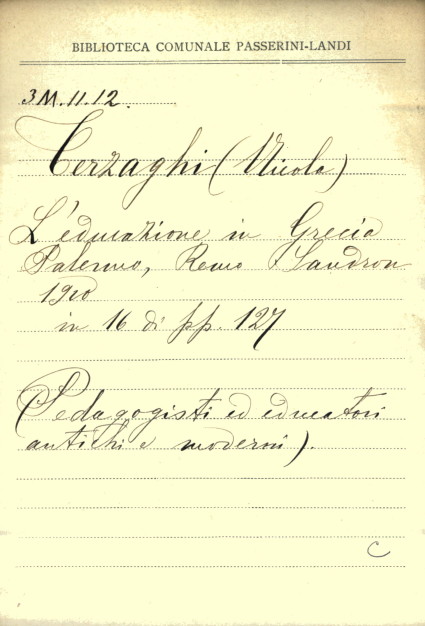 BIBLIOTECA COMUNALE PASSERINI-LANDI
3M.11.12.
Terzaghi (Nicola)
L'educazione in Grecia
Palermo, Remo Sandron
1910
in 16 di pp. 127
(Pedagogisti ed educatori
antichi e moderni).
C